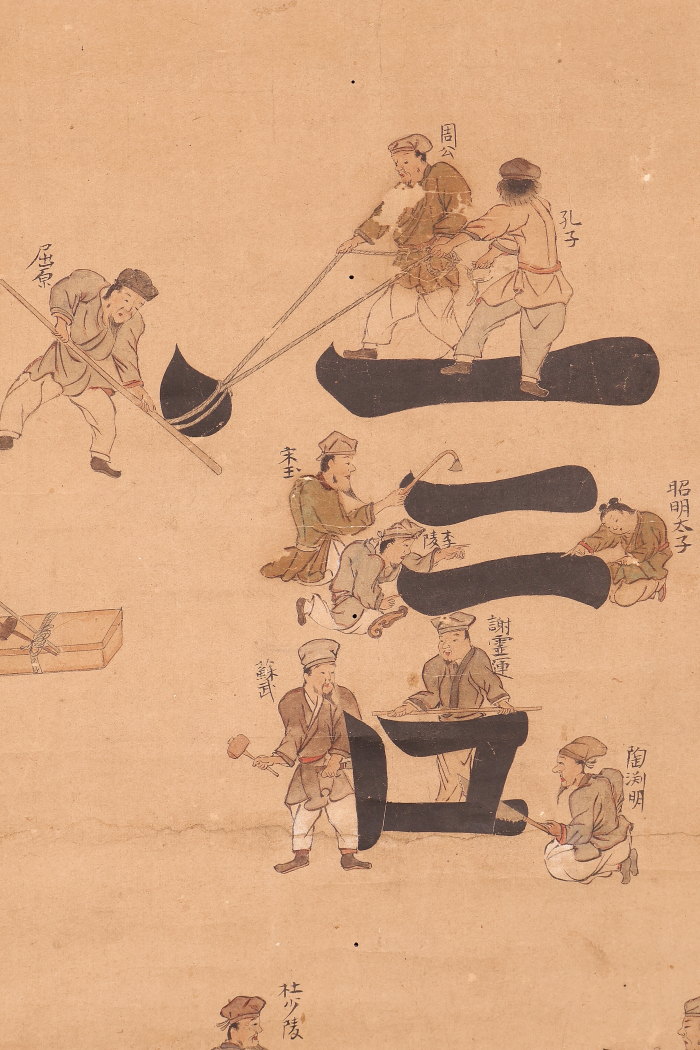 周公
孔子
屈原
昭明太子
李陵
宋玉
謝霊運
蘇武
陶渕明
杜少陵
言